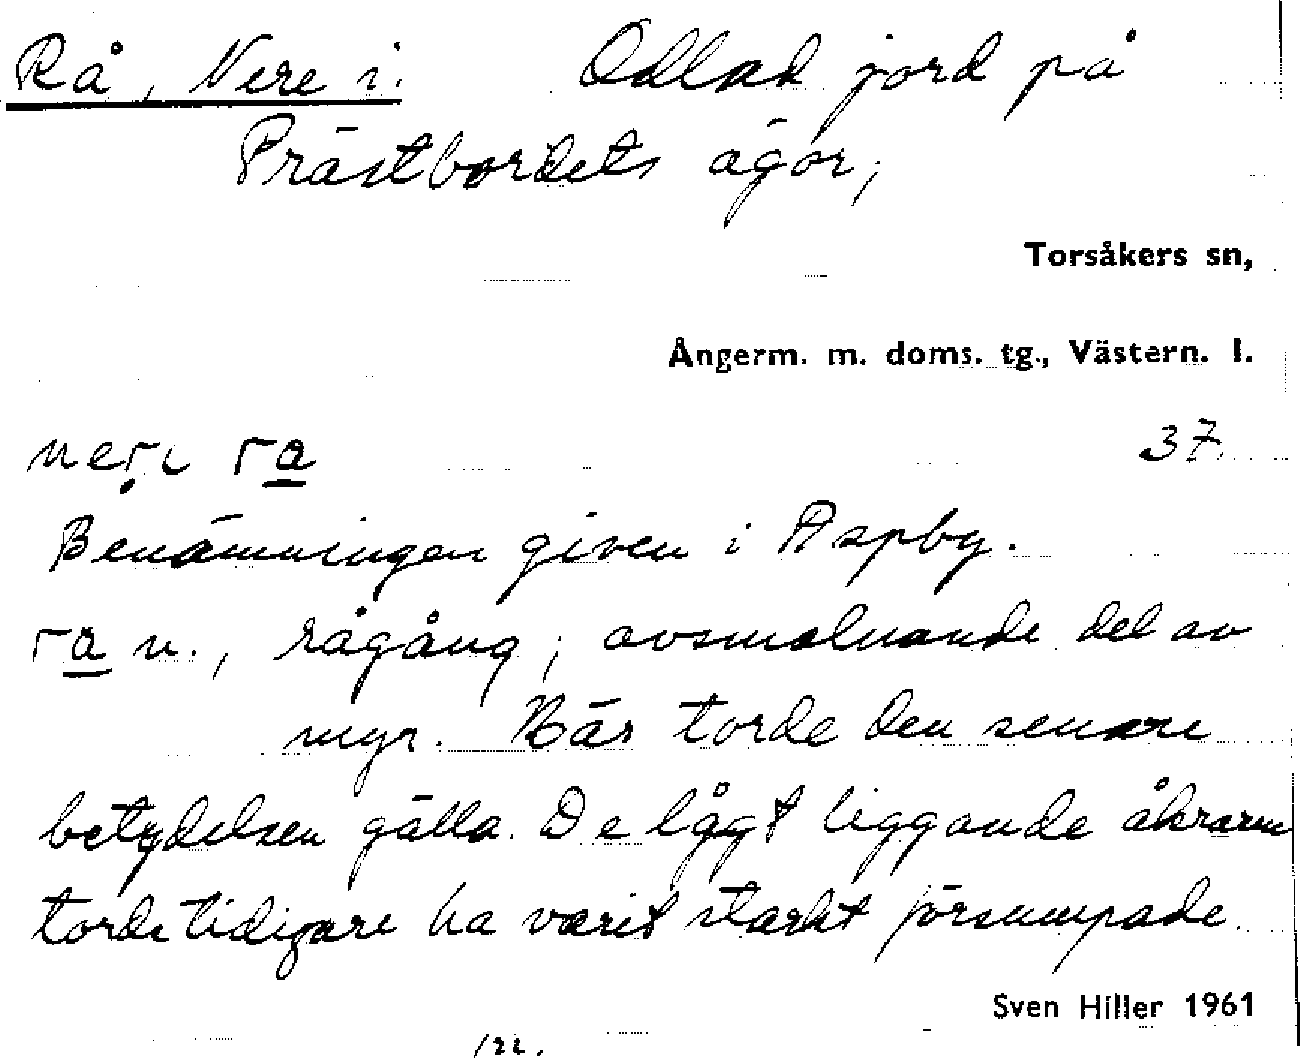 Rå, Nere i. Odlad jord på
Prästbordets ägor;
Torsåkers sn,
Ångerm. m. doms. tg., Västern. l.
neri ra 37.
Benämningen given i Aspby.
ra n., rågång; avsmalnande del av
myr. Här torde den senare
betydelsen gälla. De lågt liggande åkrarna
torde tidigare ha varit starkt försumpade.
Sven Hiller 1961